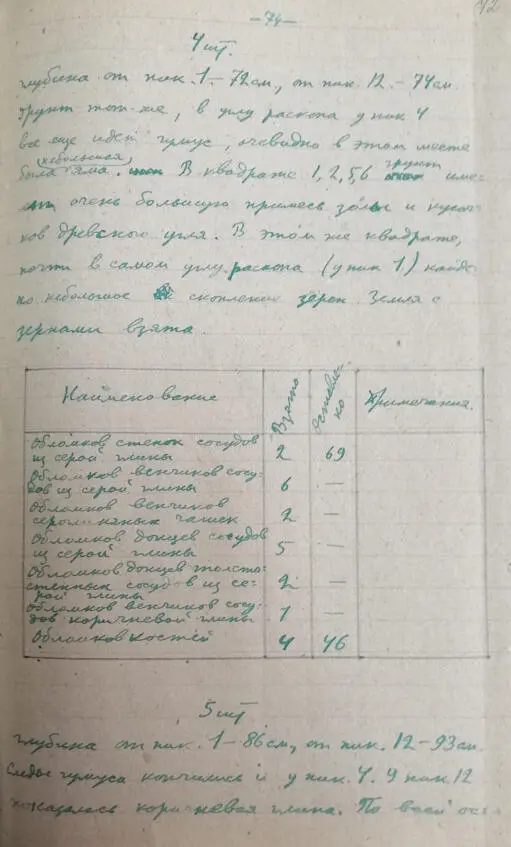 —74—
72
4 шт.
Глубина от пик. 1 – 72 см, от пик. 12 – 74 см.
Грунт тот же, в углу раскопа у пик 4
все еще идет гумус, очевидно в этом месте
(небольшая)
была яма. В квадрате 1, 2, 5, 6 грунт име-
ет очень большую примесь золы и кусоч-
ков древесного угля. В этом же квадрате,
почти в самом углу раскопа (у пик 1) найде-
но небольшое скопление зерен. Земля с
зернами взята.
Наименование Взято Оставле-но Примечания.
Обломков стенок сосудов
из серой глины 2 69
Обломков венчиков сосу-
дов из серой глины 6 —
Обломков венчиков
сероглиняных чашек 2 —
Обломков донцев сосудов
из серой глины 5 —
Обломков донцев толсто-
стенных сосудов из се-
рой глины 2 —
Обломков венчиков сосу-
дов коричневой глины 1 —
Обломков костей 4 46
5 шт
Глубина от пик. 1 – 86 см, от пик. 12 – 93 см.
Следы гумуса кончились и у пик. 4. У пик. 12
показалась коричневая глина. По всей ос